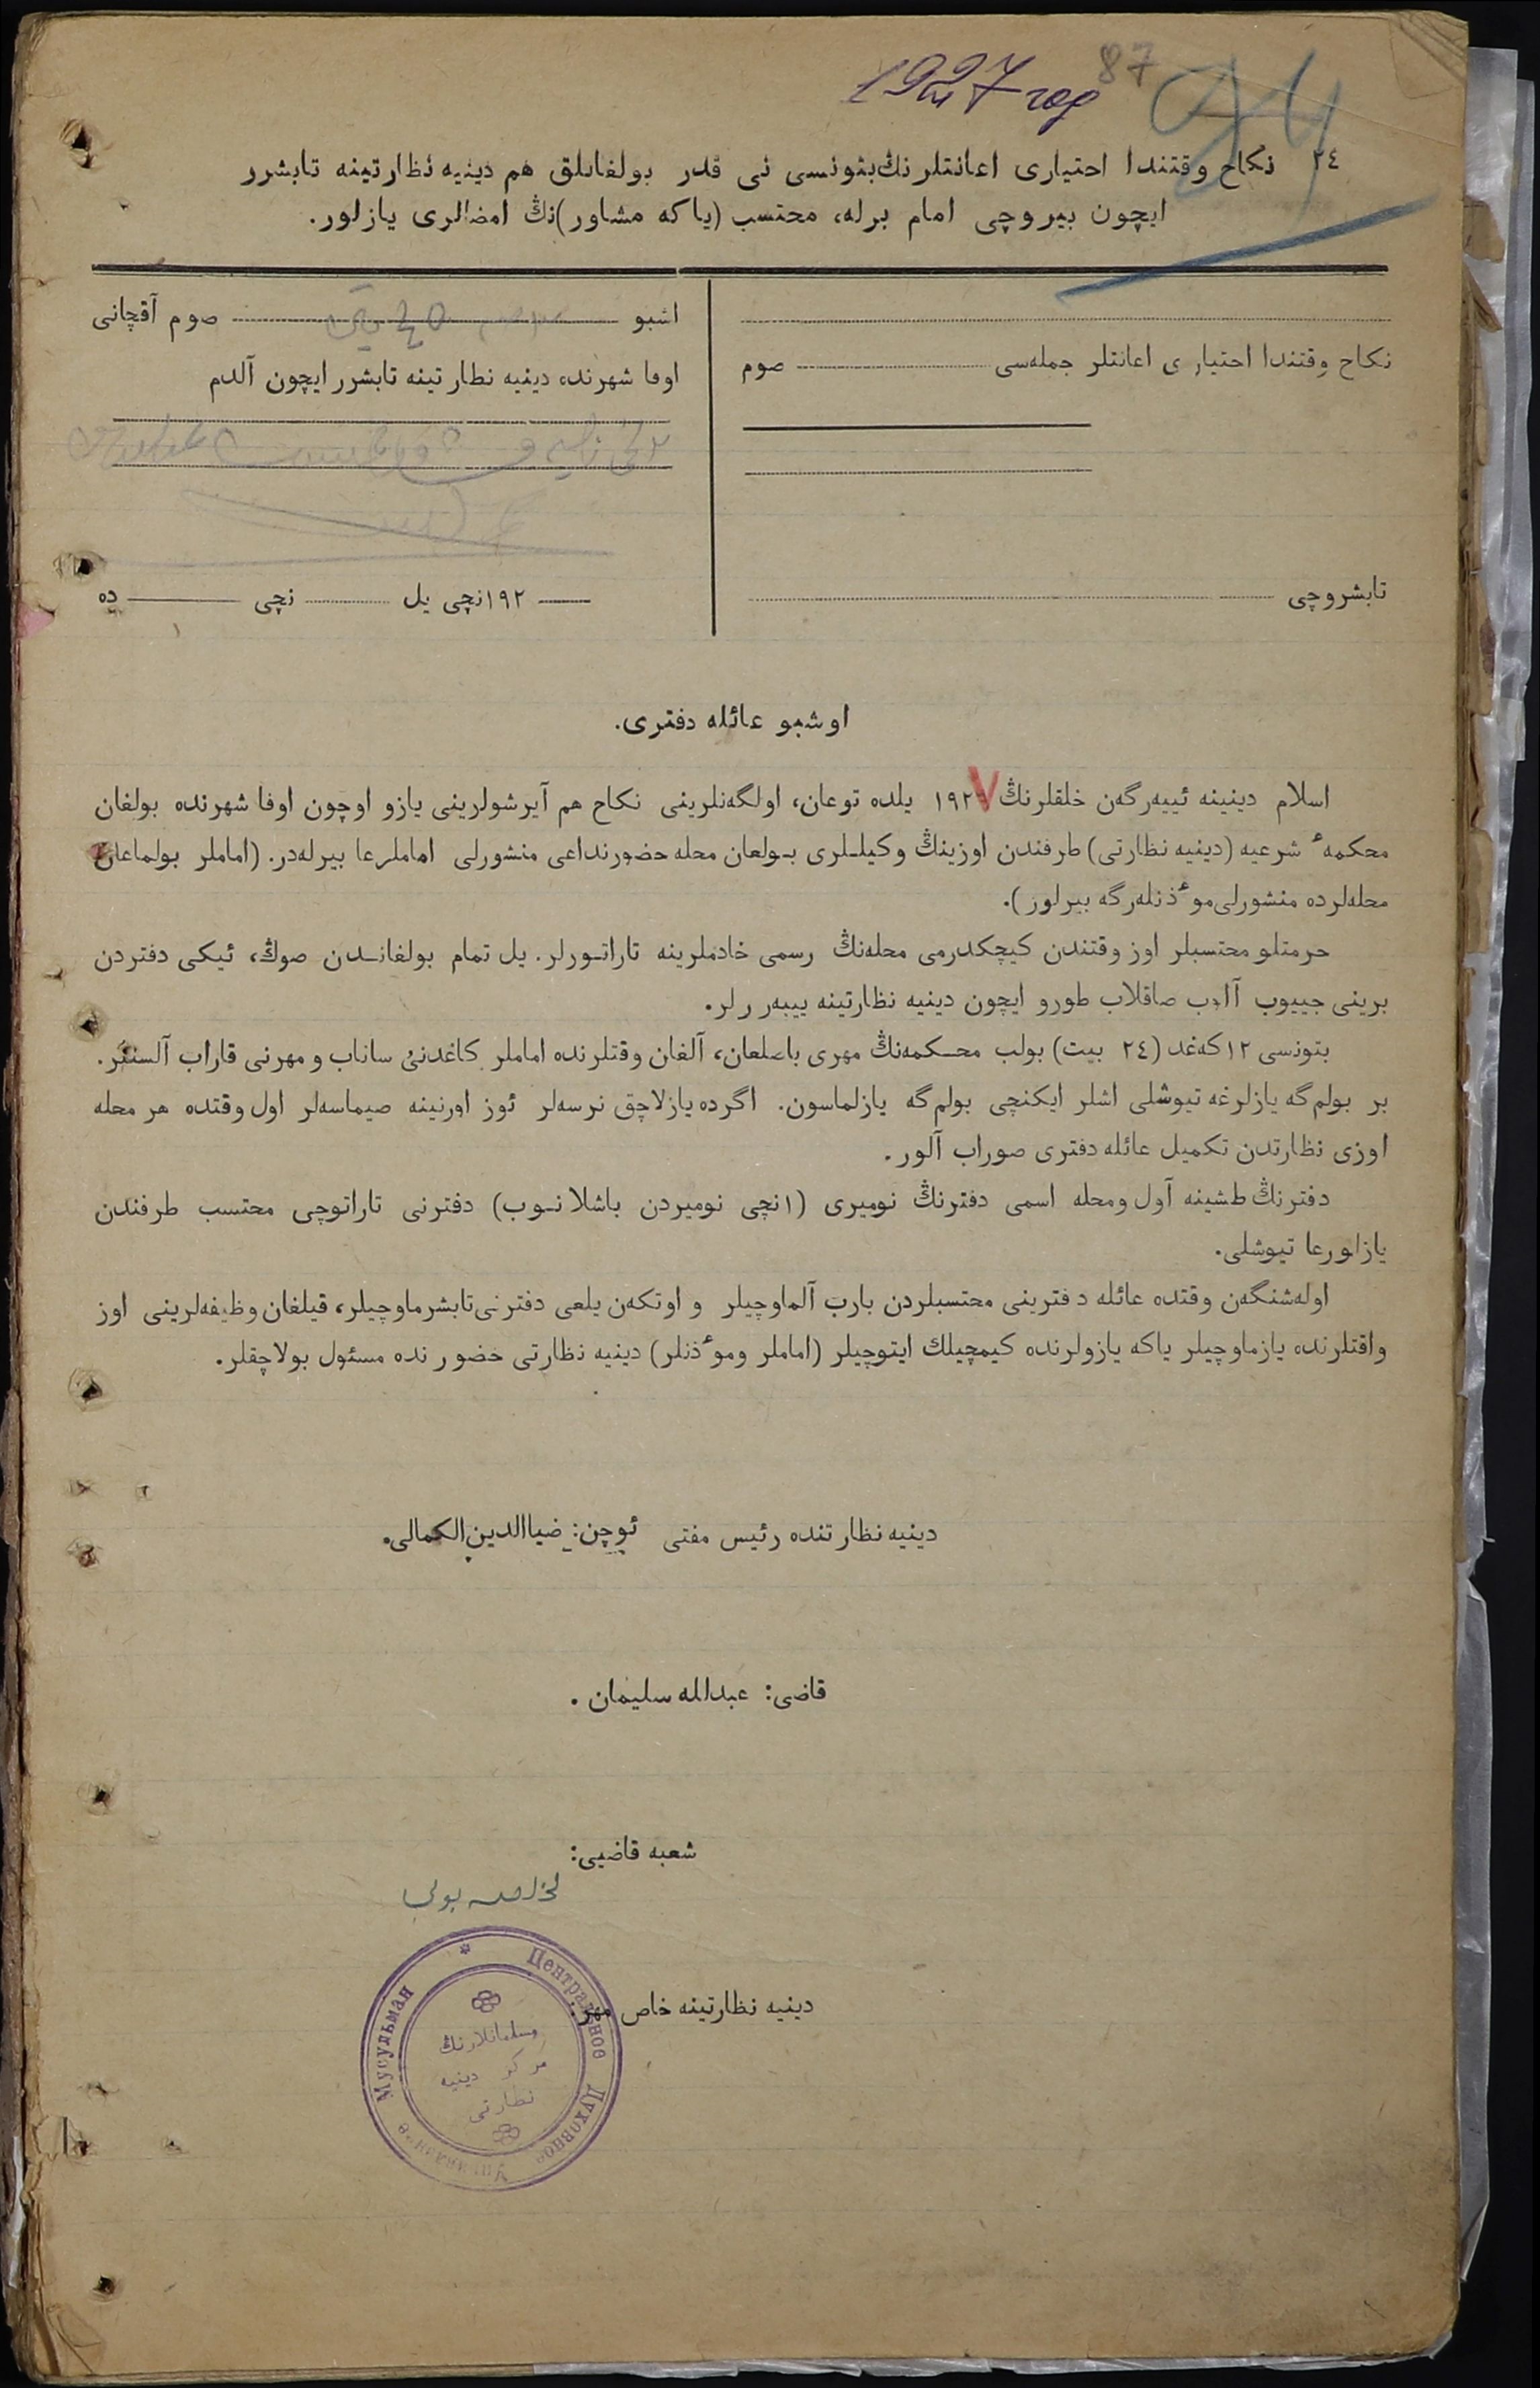 1927 год
87
٢٤ نكاح وقتندا احتیاری اعانتلرنڭ بتونسی نی قدر بولغانلق هم دینیه نظارتینه تابشرر
ایچون بیروچی امام برله، محتسب (یاکه مشاور)نڭ امضالری یازلور.
نكاح وقتندا احتیاری اعانتلر جمله‌سی صوم
تابشروچی
اشبو صوم آقچانی
اوفا شهرنده دینیه نظارتینه تابشرر ایچون آلدم
١٩٢ نچی یل نچی ده
اوشبو عائله دفتری.
اسلام دینینه ئییه‌رگه‌ن خلقلرنڭ ١٩٢٧ یلده توعان، اولگه‌نلرینی نكاح هم آیرشولرینی یازو اوچون اوفا شهرنده بولغان
محكمهٔ شرعیه (دینیه نظارتی) طرفندن اوزینڭ وكیللری بولعان محله حضورنداعی منشورلی اماملرعا بیرله‌در. (اماملر بولماعان
محله‌لرده منشورلی موٴذنله‌رگه بیرلور).
حرمتلو محتسبلر اوز وقتندن كیچكدرمی محله‌نڭ رسمی خادملرینه تاراتورلر. یل تمام بولغاندن صوڭ، ئیكی دفتردن
برینی جییوب آلوب صاقلاب طورو ایچون دینیه نظارتینه ییبه‌ررلر.
بتونسی ١٢ كه‌غد (٢٤ بیت) بولب محكمه‌نڭ مهری باصلعان، آلغان وقتلرنده اماملر كاغدنی ساناب و مهرنی قاراب آلسنلر.
بر بولم‌گه یازلرغه تیوشلی اشلر ایكنچی بولم‌گه یازلماسون. اگرده یازلاچق نرسه‌لر ئوز اورنینه صیماسه‌لر اول وقتده هر محله
اوزی نظارتدن تكمیل عائله دفتری صوراب آلور.
دفترنڭ طشینه آول ومحله اسمی دفترنڭ نومیری (١نچی نومیردن باشلانوب) دفترنی تاراتوچی محتسب طرفندن
یازلورعا تیوشلی.
اوله‌شنگه‌ن وقتده عائله دفترینی محتسبلردن بارب آلماوچیلر و اوتكه‌ن یلعی دفترنی تابشرماوچیلر، قیلغان وظیفه‌لرینی اوز
واقتلرنده یازماوچیلر یاكه یازولرنده كیمچیلك ایتوچیلر (اماملر وموٴذنلر) دینیه نظارتی حضورنده مسئول بولاچقلر.
دینیه نظارتنده رئیس مفتی ئوچن: ضیاالدین الكمالی.
قاضی: عبدالله سلیمان.
شعبه قاضیی:
دینیه نظارتینه خاص مهر:
Центральное Духовное Управление Мусульман
مسلمانلارنڭ
مركز دینیه
نظارتی